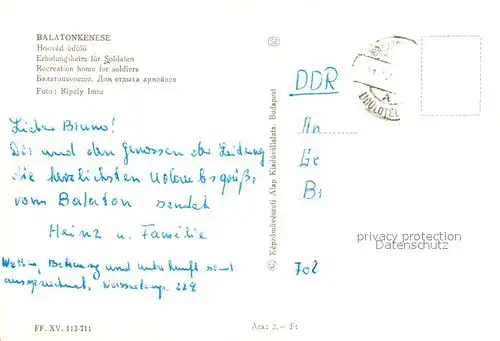 BALATONKENESE
Honvéd üdülő
Erholungsheim für Soldaten
Recreation home for soldiers
Балатонкенеше. Дом отдыха армейцев
Foto: Ripely Imre
Lieber Bruno!
Dir und den Genossen der Leitung
die herzlichsten Urlaubsgrüße
vom Balaton sendet
Heinz u. Familie
Wetter, Betreuung und Unterkunft sind
ausgezeichnet, Wassertemp. 22°
FF. XV. 113-711
Ára: 2.— Ft
© Képzőművészeti Alap Kiadóvállalata, Budapest
DDR
An
Ge
Br
702
privacy protection
Datenschutz